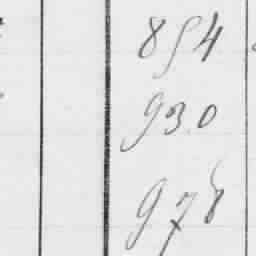 854
930
978